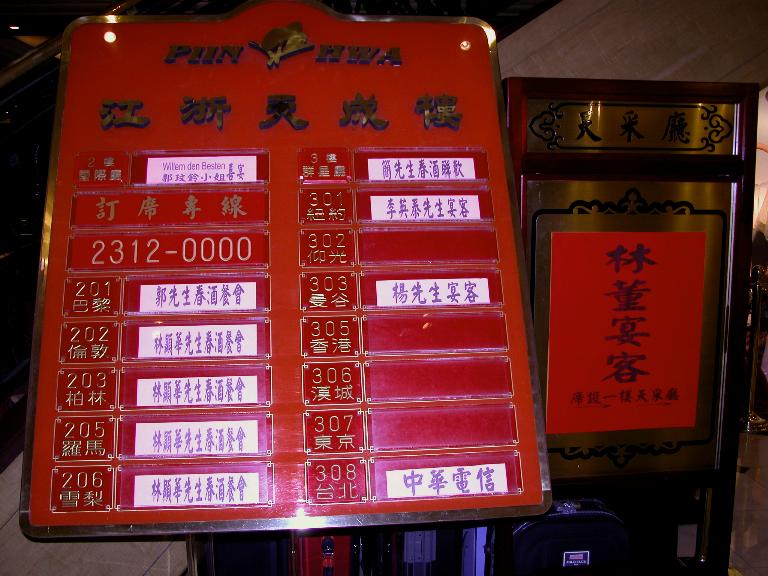 PUN HWA
江浙天成樓
2樓
Willem den Besten
郭玟鈴小姐喜宴
訂席專線
2312-0000
201
巴黎
郭先生春酒餐會
202
倫敦
林顯華先生春酒餐會
203
柏林
林顯華先生春酒餐會
205
羅馬
林顯華先生春酒餐會
206
雪梨
林顯華先生春酒餐會
3樓
群星廳
簡先生春酒聯歡
301
紐約
李英泰先生宴客
302
仰光
303
曼谷
楊先生宴客
305
香港
306
漢城
307
東京
308
台北
中華電信
天采廳
林董宴客
席設一樓天采廳